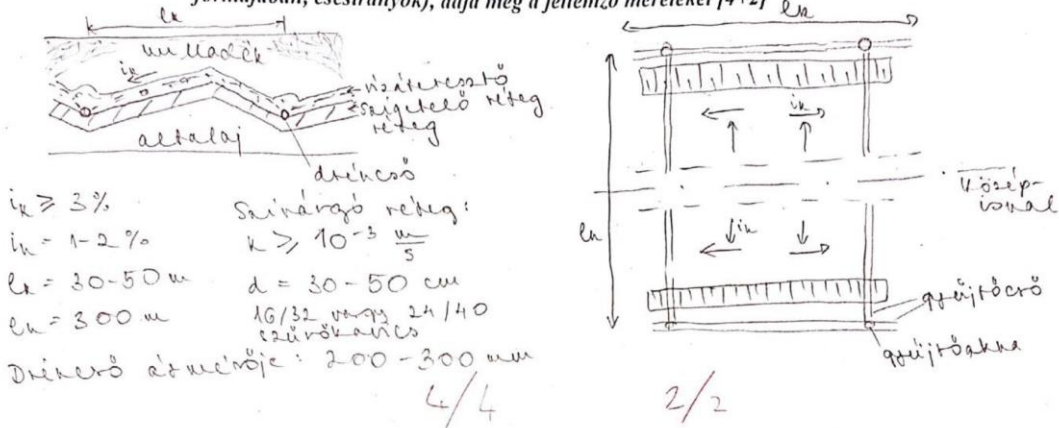 formájában, esésirányok), adja meg a jellemző méreteket [4+2]
lk
hulladék
ik
vízáteresztő réteg
szigetelő réteg
altalaj
dréncső
ik ≥ 3%
ih = 1-2%
lk = 30-50 m
lh = 300 m
Szivárgó réteg:
k ≥ 10⁻³ m/s
d = 30-50 cm
16/32 vagy 24/40
szűrőkavics
Dréncső átmérője: 200-300 mm
4/4
lk
ik
Középvonal
lh
ih
gyűjtőcső
gyűjtőakna
2/2